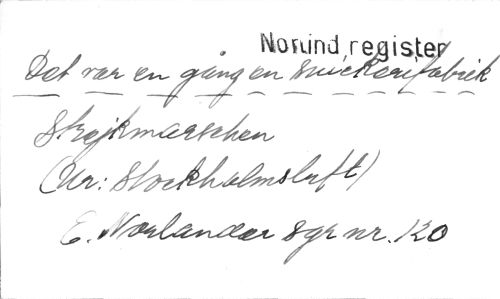 Norlind register
Det var en gång en snickerifabrik
Strejkmarschen
(Ur: Stockholmsluft)
E. Norlander sgr nr. 120